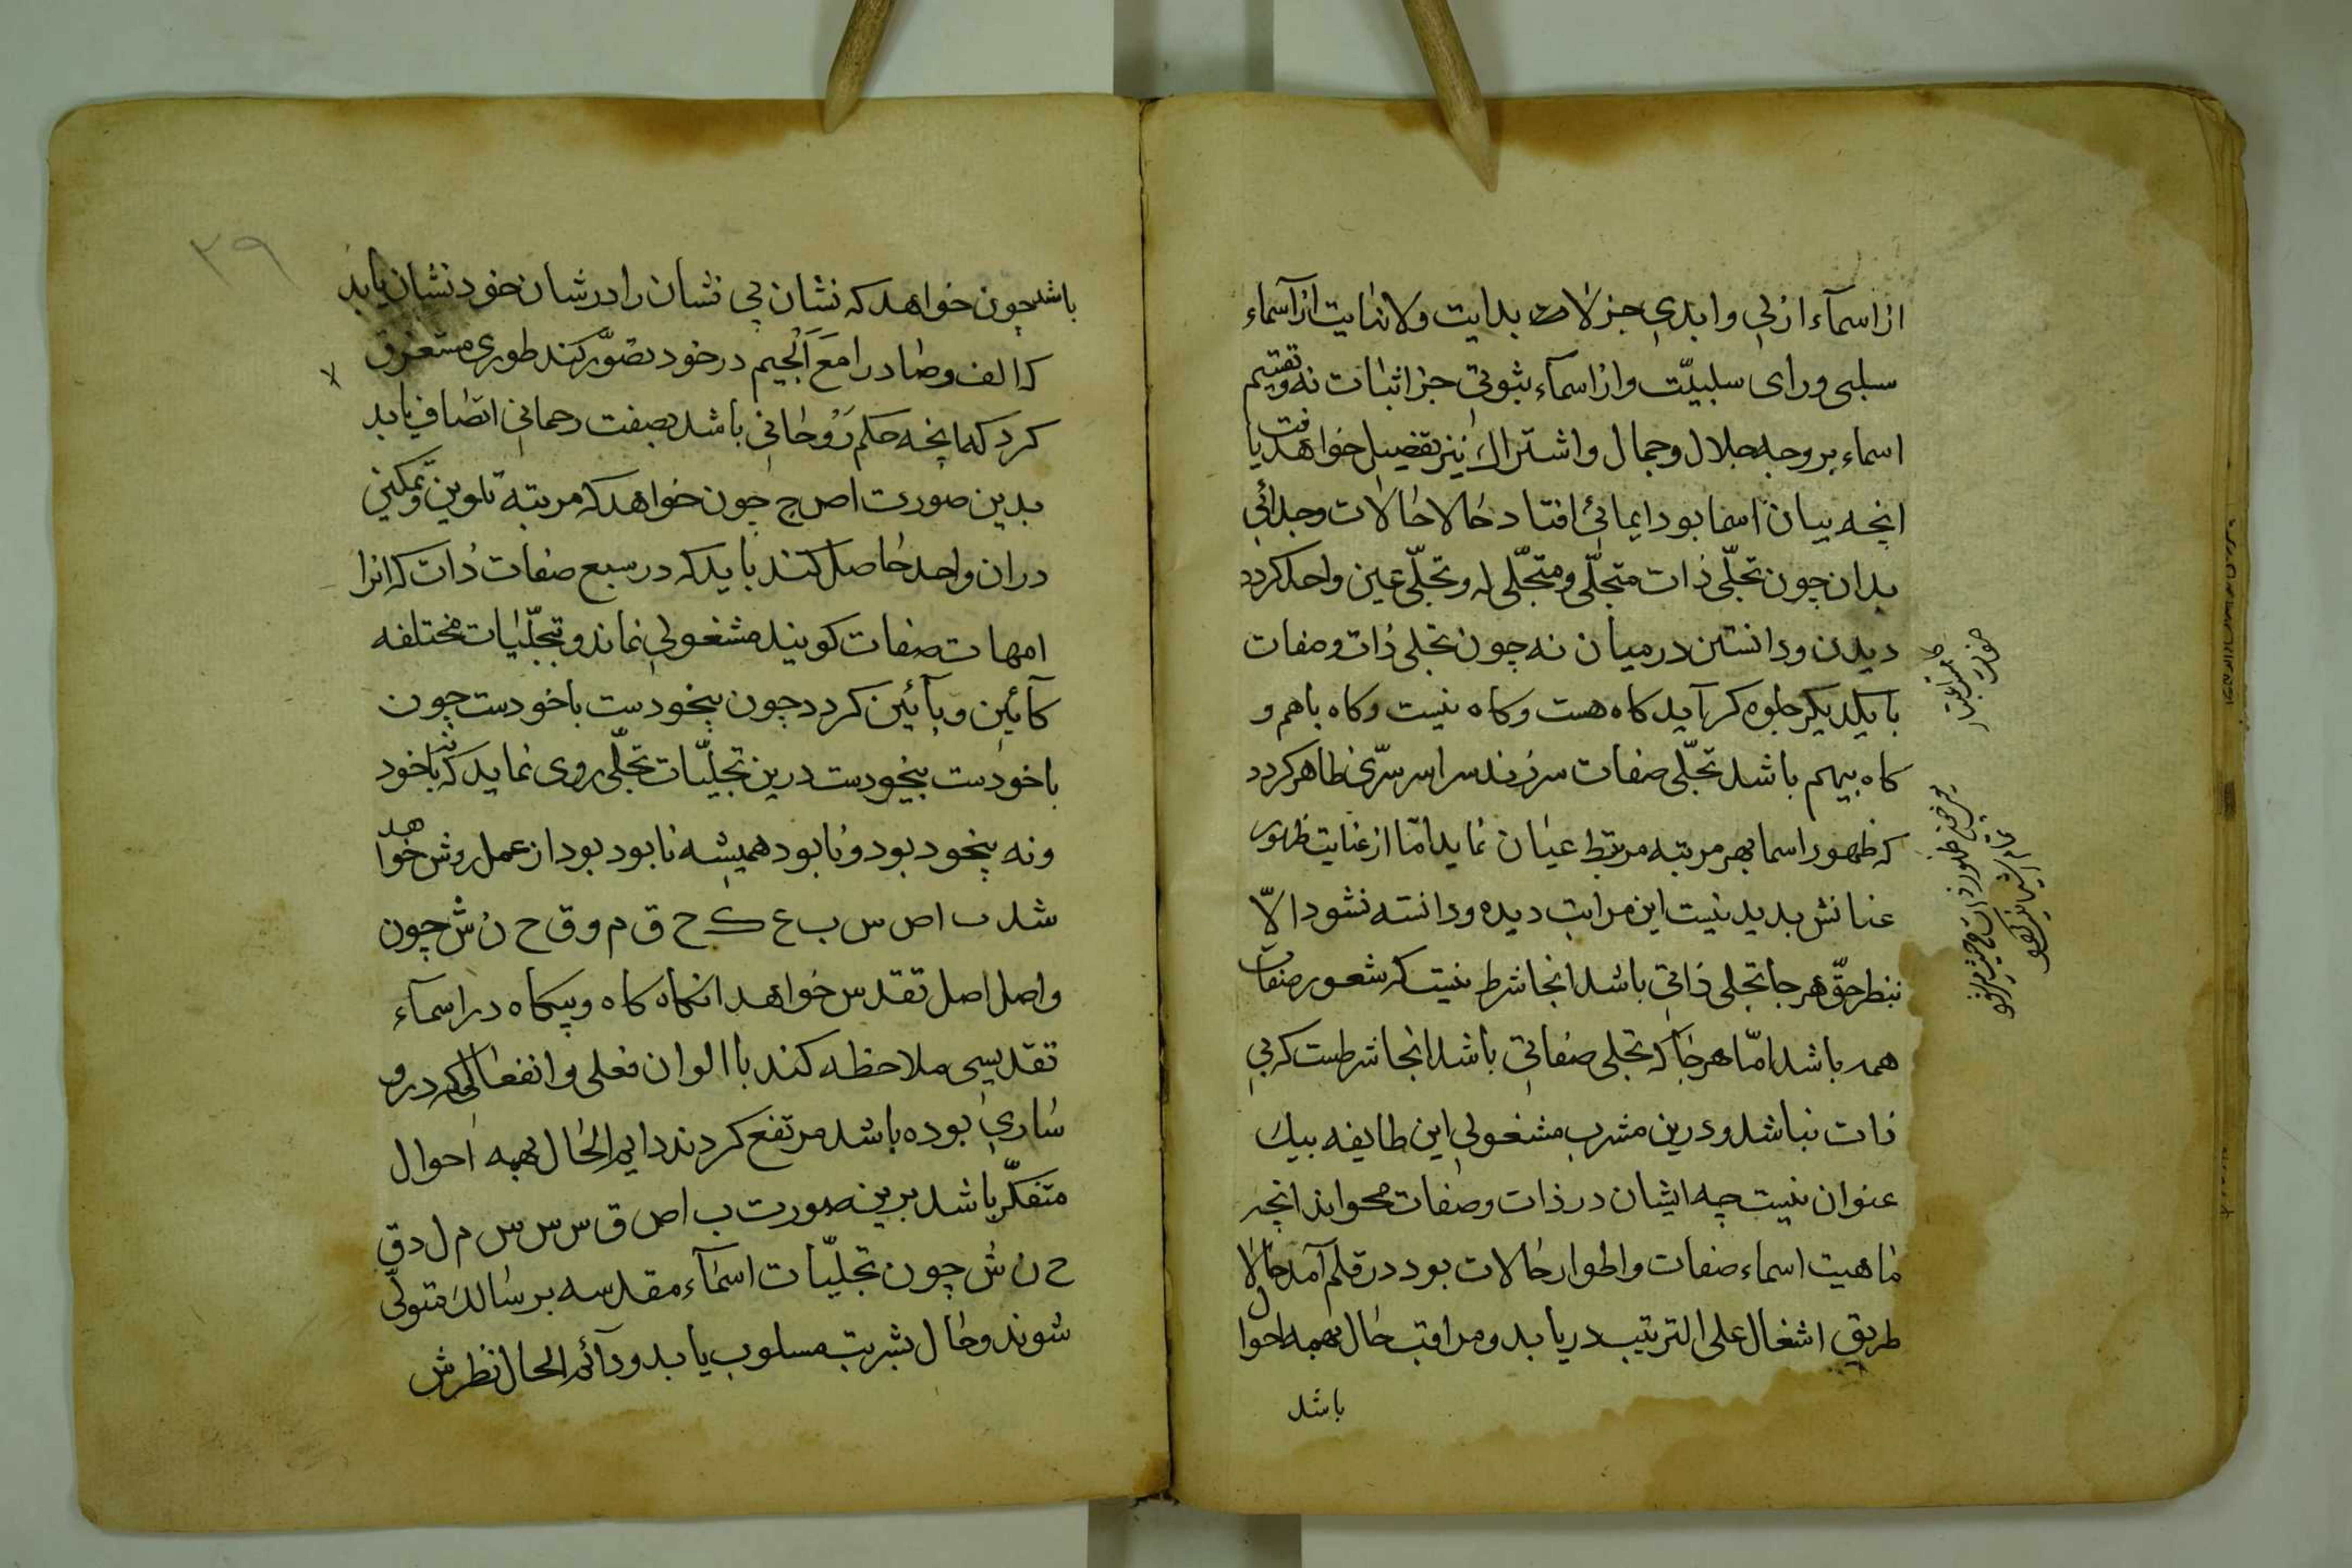 از اسمآء ازلی و ابدی جز لات بدایت ولانهایت از آسماء
سلبی ورای سلبیّت واز اسمآء ثبوتی جز اثبات نه و تقسیم
اسماء بر وجه جلال وجمال و اشتراك نیز تفصیل خواهد یافت
انچه بیان اسما بود ایمائی افتاد حالا حالات وجدانی
بدان چون تجلّی ذات متجلّی و متجلّی له وتجلّی عین واحد کردد
دیدن ودانستن درمیان نه چون تجلی ذات وصفات
بایکدیکر جلوه کر آید کاه هست وکاه نیست وکاه باهم و
کاه بیهم باشد تجلّی صفات سرزند سراسر سرّی ظاهر کردد
که ظهور اسما بهر مرتبه مرتبط عیان نماید امّا از غایت ظهور
عنانش بدید نیست این مراتب دیده و دانسته نشود الّا
بنظر حقّ هرجا تجلی ذاتی باشد انجا شرط نیست که شعور صفات
همه باشد امّا هرجا که تجلی صفاتی باشد انجا شرطست که بی
ذات نباشد ودرین مشرب مشغولی این طایفه بیك
عنوان نیست چه ایشان در ذات وصفات محواند انچه
ماهیت اسماء صفات واطوار حالات بود در قلم آمد حالا
طریق اشغال علی الترتیب دریابد ومراقب حال بهمه احوال
باشد
۳۹
باشد چون خواهد که نشان بی نشان را درشان خود نشان یابد
که الف وصاد را مَعَ اَلْجیم درخود تصوّر کند طوری مستغرق
کردد که انچه حکم رَوْحانی باشد بصفت رحمانی اتصافی یابد
بدین صورت اص ج چون خواهد که مرتبه تلوین و تمکین
دران واحد حاصل کند باید که در سبع صفات ذات که انرا
امهات صفات کویند مشغولی نماند و تجلّیات مختلفه
کآئین وبآئین کردد چون بیخودست باخودست چون
باخودست بیخودست درین تجلیّات تجلّی روی نماید که نه باخود
ونه بیخود بود ونابود همیشه نابود بود از عمل روش خواهد
شد ب اص س ب ع ک ح ق م و ق ح ن ش چون
واصل اصل تقدس خواهد انکاه کاه وبیکاه در اسمآء
تقدیسی ملاحظه کند با الوان فعلی وانفعالی که درو
ساری بوده باشد مرتفع کردند دایم الحال بهمه احوال
متفکّر باشد برین صورت ب اص ق س س س م ل د ق
ح ن ش چون تجلیّات اسمآء مقدسه بر سالك متولّی
شوند وحال بشریت مسلوب یابد ودآئم الحال نظرش